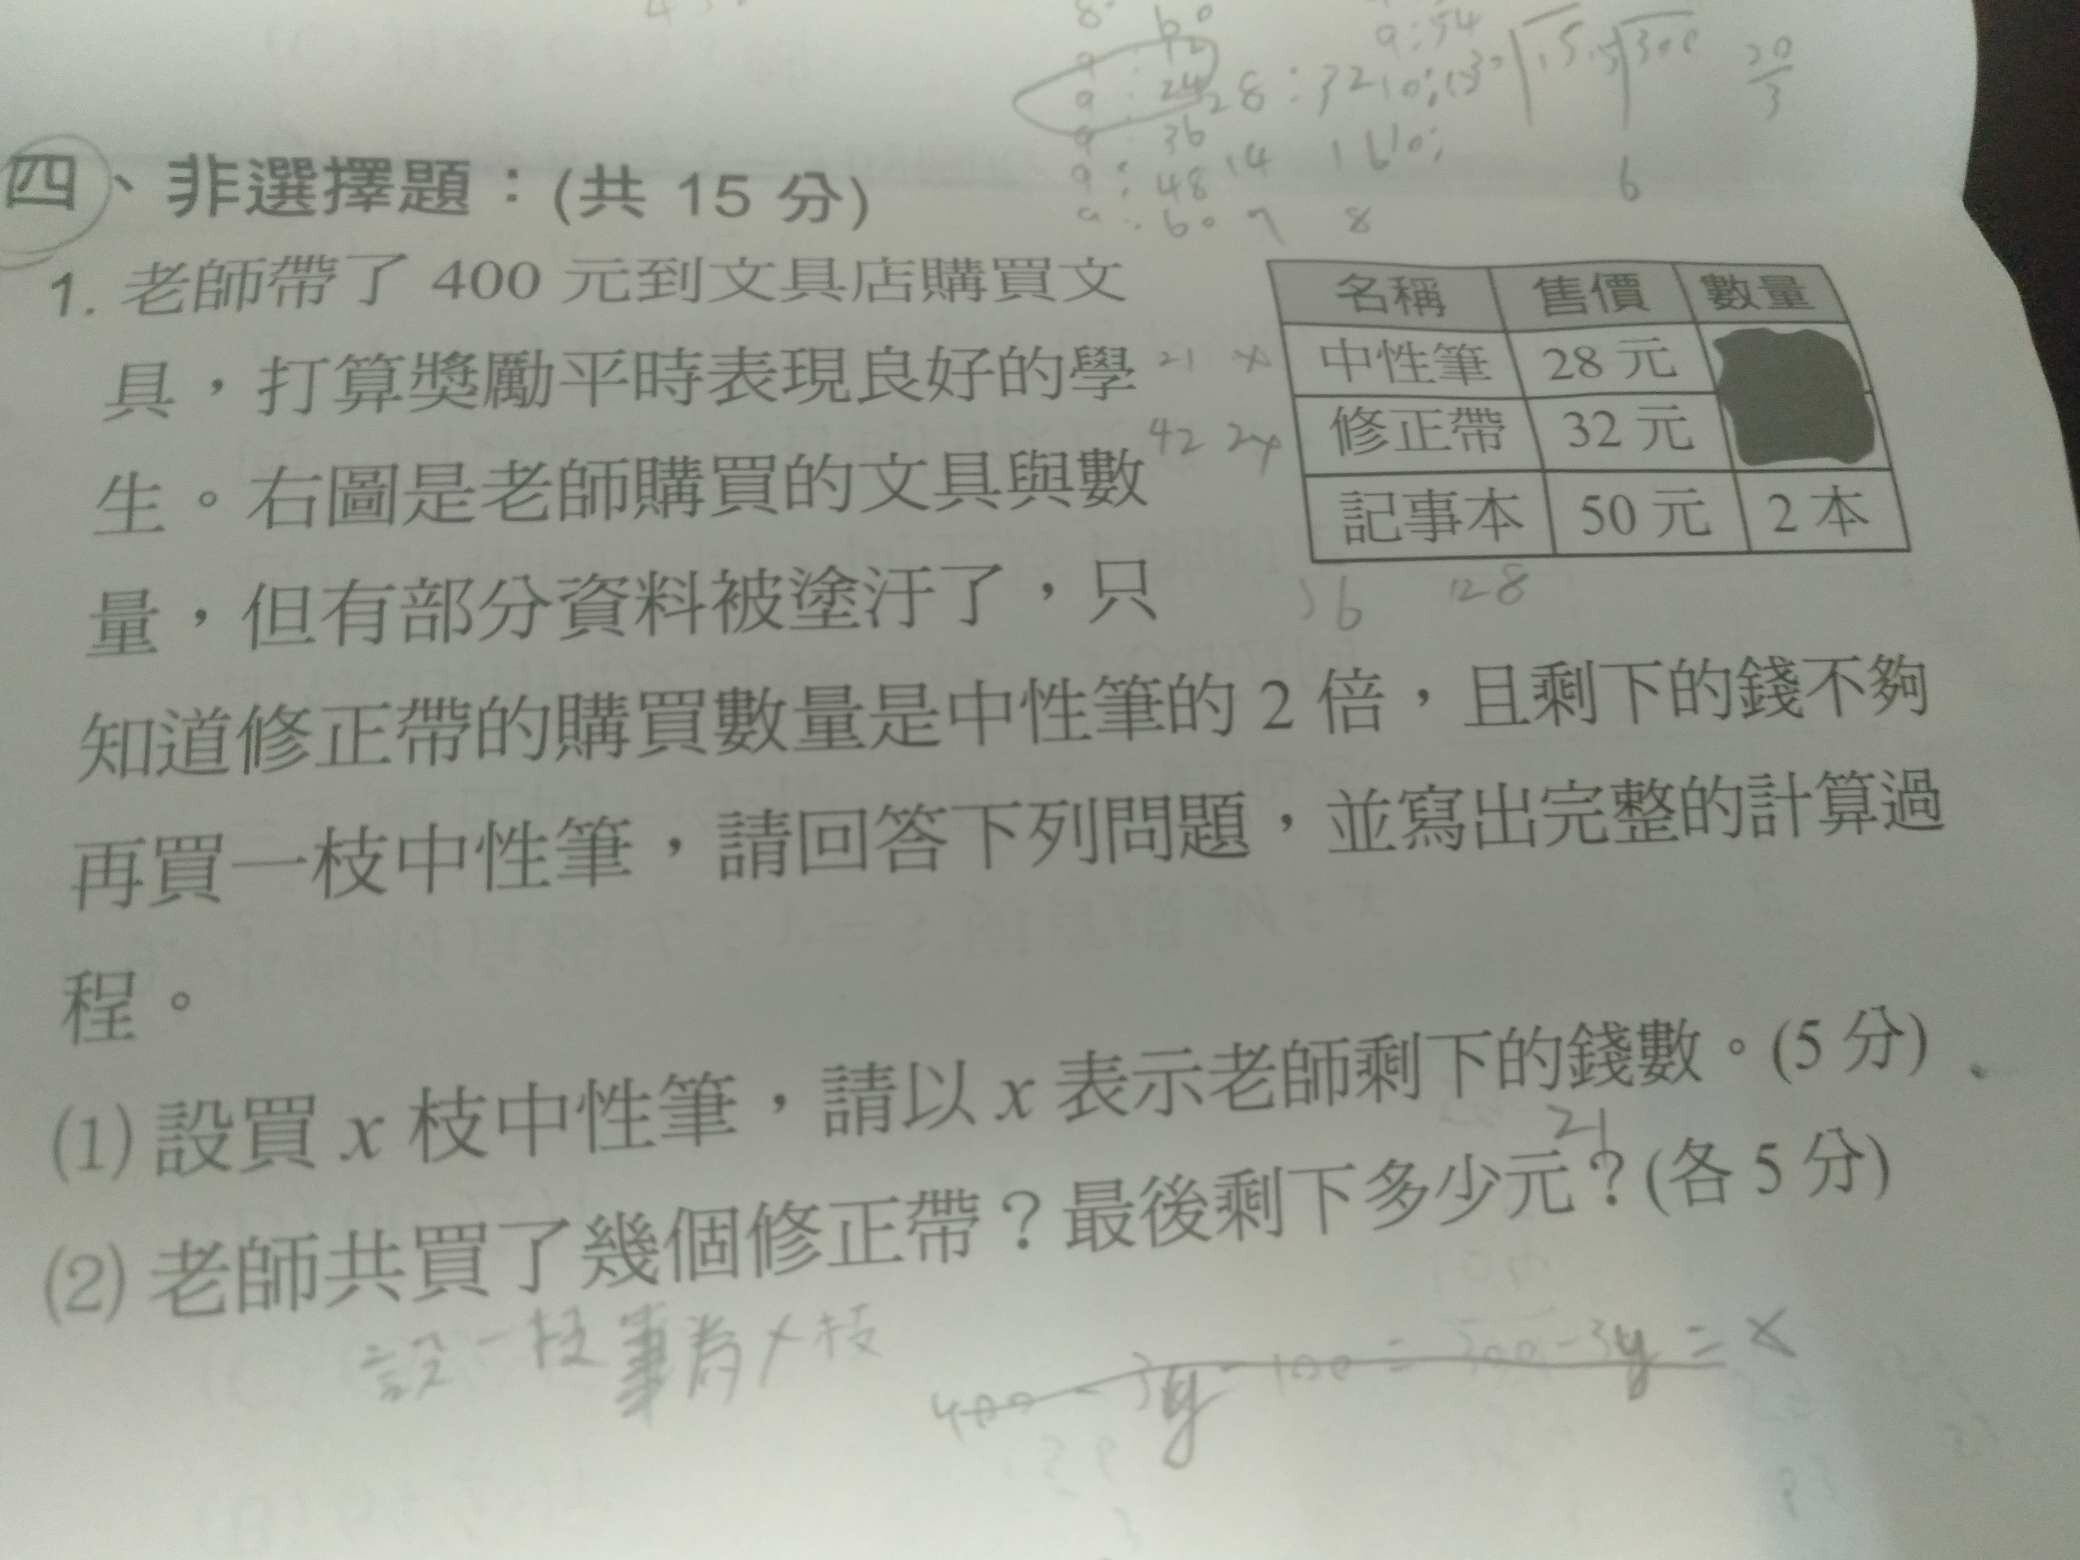 四、非選擇題：(共 15 分)
1. 老師帶了 400 元到文具店購買文
具，打算獎勵平時表現良好的學
生。右圖是老師購買的文具與數
量，但有部分資料被塗汙了，只
知道修正帶的購買數量是中性筆的 2 倍，且剩下的錢不夠
再買一枝中性筆，請回答下列問題，並寫出完整的計算過
程。
名稱 售價 數量
中性筆 28 元
修正帶 32 元
記事本 50 元 2 本
21 x
42 2x
128
(1) 設買 x 枝中性筆，請以 x 表示老師剩下的錢數。(5 分)
21
(2) 老師共買了幾個修正帶？最後剩下多少元？(各 5 分)
設一枝筆為x枝
400 - 3y - 100 = 300 - 3y = x